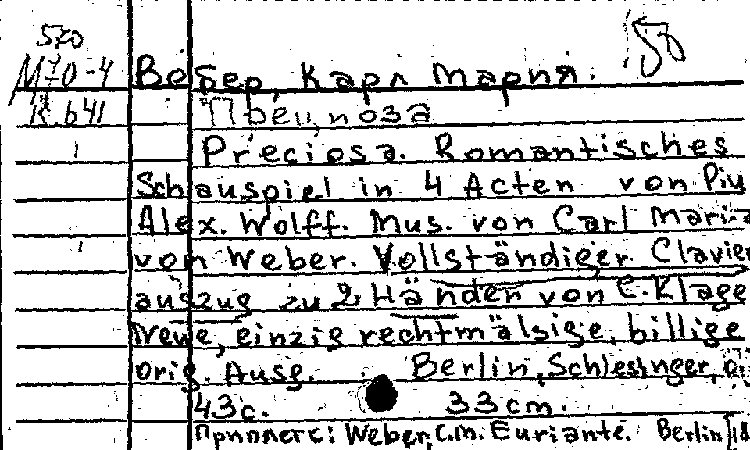 570
М70-4 Вебер, Карл Мария. 58
К 641 Прециоза
Preciosa. Romantisches
Schauspiel in 4 Acten von Piu
Alex. Wolff. Mus. von Carl Maria
von Weber. Vollständiger Clavier
auszug zu 2 Händen von C. Klage
Neue, einzig rechtmälsige, billige
orig. Ausg. Berlin, Schlesinger,
43 с. 33 cm.
Приплетс: Weber, C.M. Euriante. Berlin [18